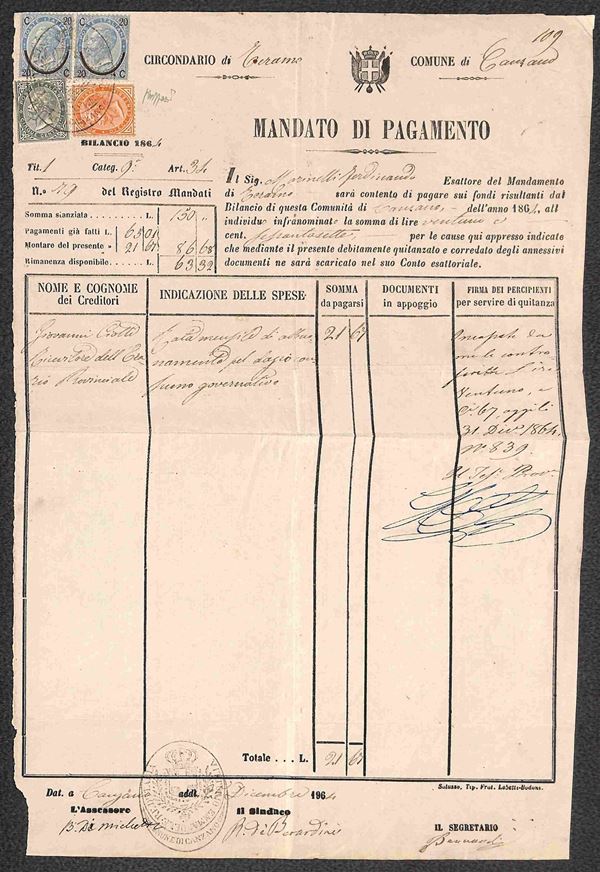 109
CIRCONDARIO di Teramo
COMUNE di Canzano
MANDATO DI PAGAMENTO
BILANCIO 1864
Tit. 1 Categ. 9ª Art. 34
N.° 49 del Registro Mandati
Somma stanziata L. 150 "
Pagamenti già fatti L. 65 01
Montare del presente » 21 67 86 68
Rimanenza disponibile L. 63 32
Il Sig. Marinelli Ferdinando Esattore del Mandamento
di Teramo sarà contento di pagare sui fondi risultanti dal
Bilancio di questa Comunità di Canzano dell'anno 1864, all
individuo infranominato la somma di lire ventuno e
cent. sessantasette per le cause qui appresso indicate
che mediante il presente debitamente quitanzato e corredato degli annessivi
documenti ne sarà scaricato nel suo Conto esattoriale.
NOME E COGNOME
dei Creditori
INDICAZIONE DELLE SPESE
SOMMA
da pagarsi
DOCUMENTI
in appoggio
FIRMA DEI PERCIPIENTI
per servire di quitanza
Giovanni Ciotti
Ricevitore dell
Provinciale
Rata mensile di abbuo-
namento pel dazio con-
sumo governativo
21 67
da
me le contro
lire
Ventuno, e
C.i 67, oggi li
31 Dic. 1864.
N° 839.
Il Tes. Prov.
Totale . . . L. 21 67
Dat. a Canzano addì Dicembre 1864
Saluzzo, Tip. Frat. Lobetti-Bodoni.
L'Assessore
B. De Michetti
Il Sindaco
R. de Berardinis
IL SEGRETARIO
C 20
20 C
C 20
20 C